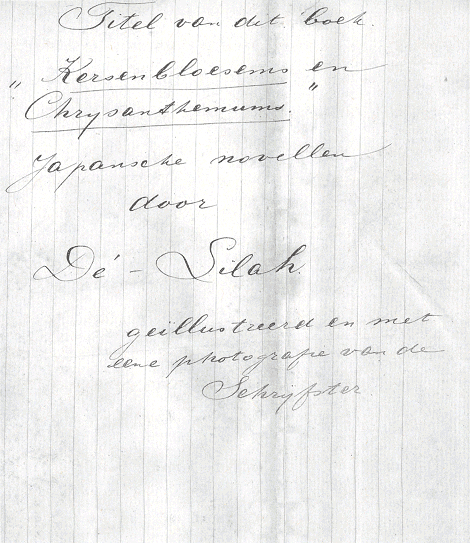 Titel van dit boek.
„ Kersenbloesems en
Chrysanthemums. "
Japansche novellen
door
Dé - Lilah.
geïllustreerd en met
eene photografie van de
Schrijfster